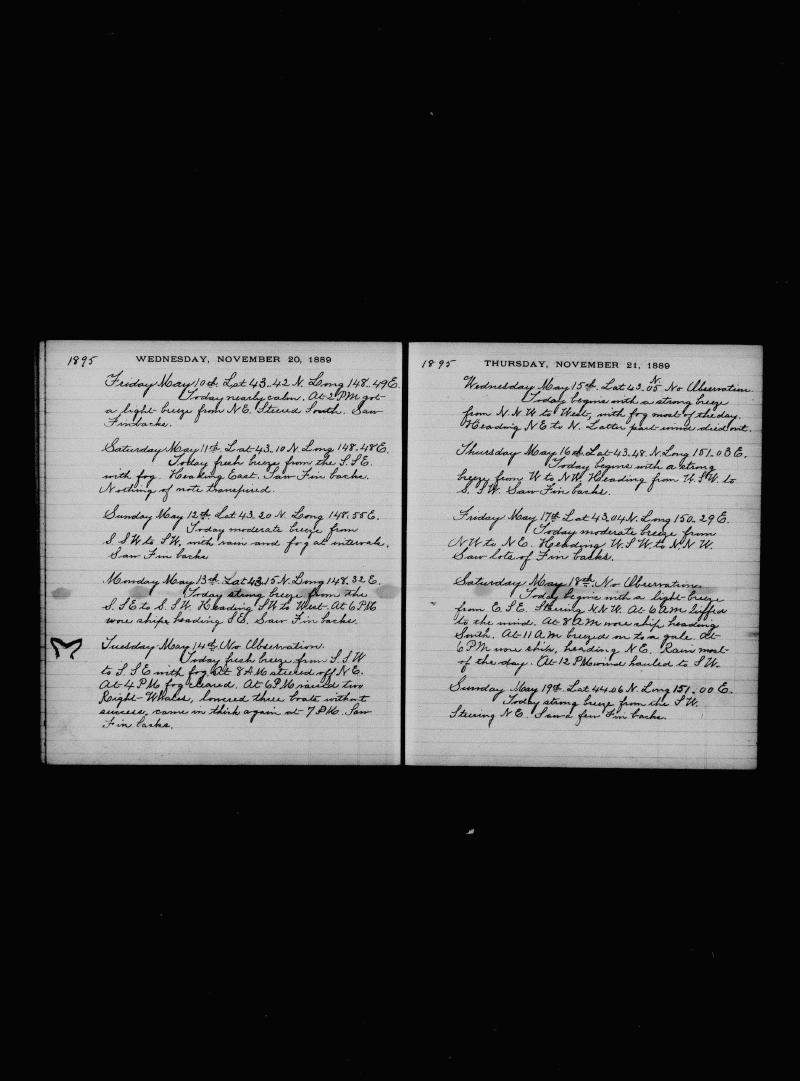 1895 WEDNESDAY, NOVEMBER 20, 1889
Friday May 10th. Lat 43..42 N. Long 148..49 E.
Today nearly calm. At 2 PM got
a light breeze from N E. Steered South. Saw
Finbacks.
Saturday May 11th. Lat 43.10 N Long 148.48 E.
Today fresh breeze from the S.S E.
with fog. Heading East. Saw Fin backs.
Nothing of note transpired.
Sunday May 12th. Lat 43.20 N. Long 148.55 E.
Today moderate breeze from
S. S W to S W. with rain and fog at intervals.
Saw Fin backs
Monday May 13th. Lat 43.15 N. Long 148.32 E.
Today strong breeze from the
S. S E to S. S W. Heading S W to West. At 6 PM
wore ships heading S E. Saw Fin backs.
Tuesday May 14th. No Observation.
Today fresh breeze from S. S W
to S. S E with fog. At 8 AM steered off N E.
At 4 PM fog cleared. At 6 PM raised two
Right-Whales, lowered three boats without
success, came in thick again at 7 PM. Saw
Fin backs.
1895 THURSDAY, NOVEMBER 21, 1889
Wednesday May 15th. Lat 43.05 N No Observation
Today begins with a strong breeze
from N. N W to West, with fog most of the day.
Heading N E to N. Latter part wind died out.
Thursday May 16th. Lat 43.48. N. Long 151.03 E.
Today begins with a strong
breeze from W to N W. Heading from W. S W. to
S. S W. Saw Fin backs.
Friday May 17th. Lat 43.04 N. Long 150.29 E.
Today moderate breeze from
N W to N E. Heading W. S W. to N. N W.
Saw lots of Fin backs.
Saturday May 18th. No Observation.
Today begins with a light breeze
from E. S E. Steering N. N W. At 6 AM luffed
to the wind. At 8 AM wore ship heading
South. At 11 A M breezed on to a gale. At
6 PM wore ship, heading N E. Rain most
of the day. At 12 PM wind hauled to S W.
Sunday May 19th. Lat 44.06 N. Long 151.00 E.
Today strong breeze from the S W.
Steering N E. Saw a few Fin backs.